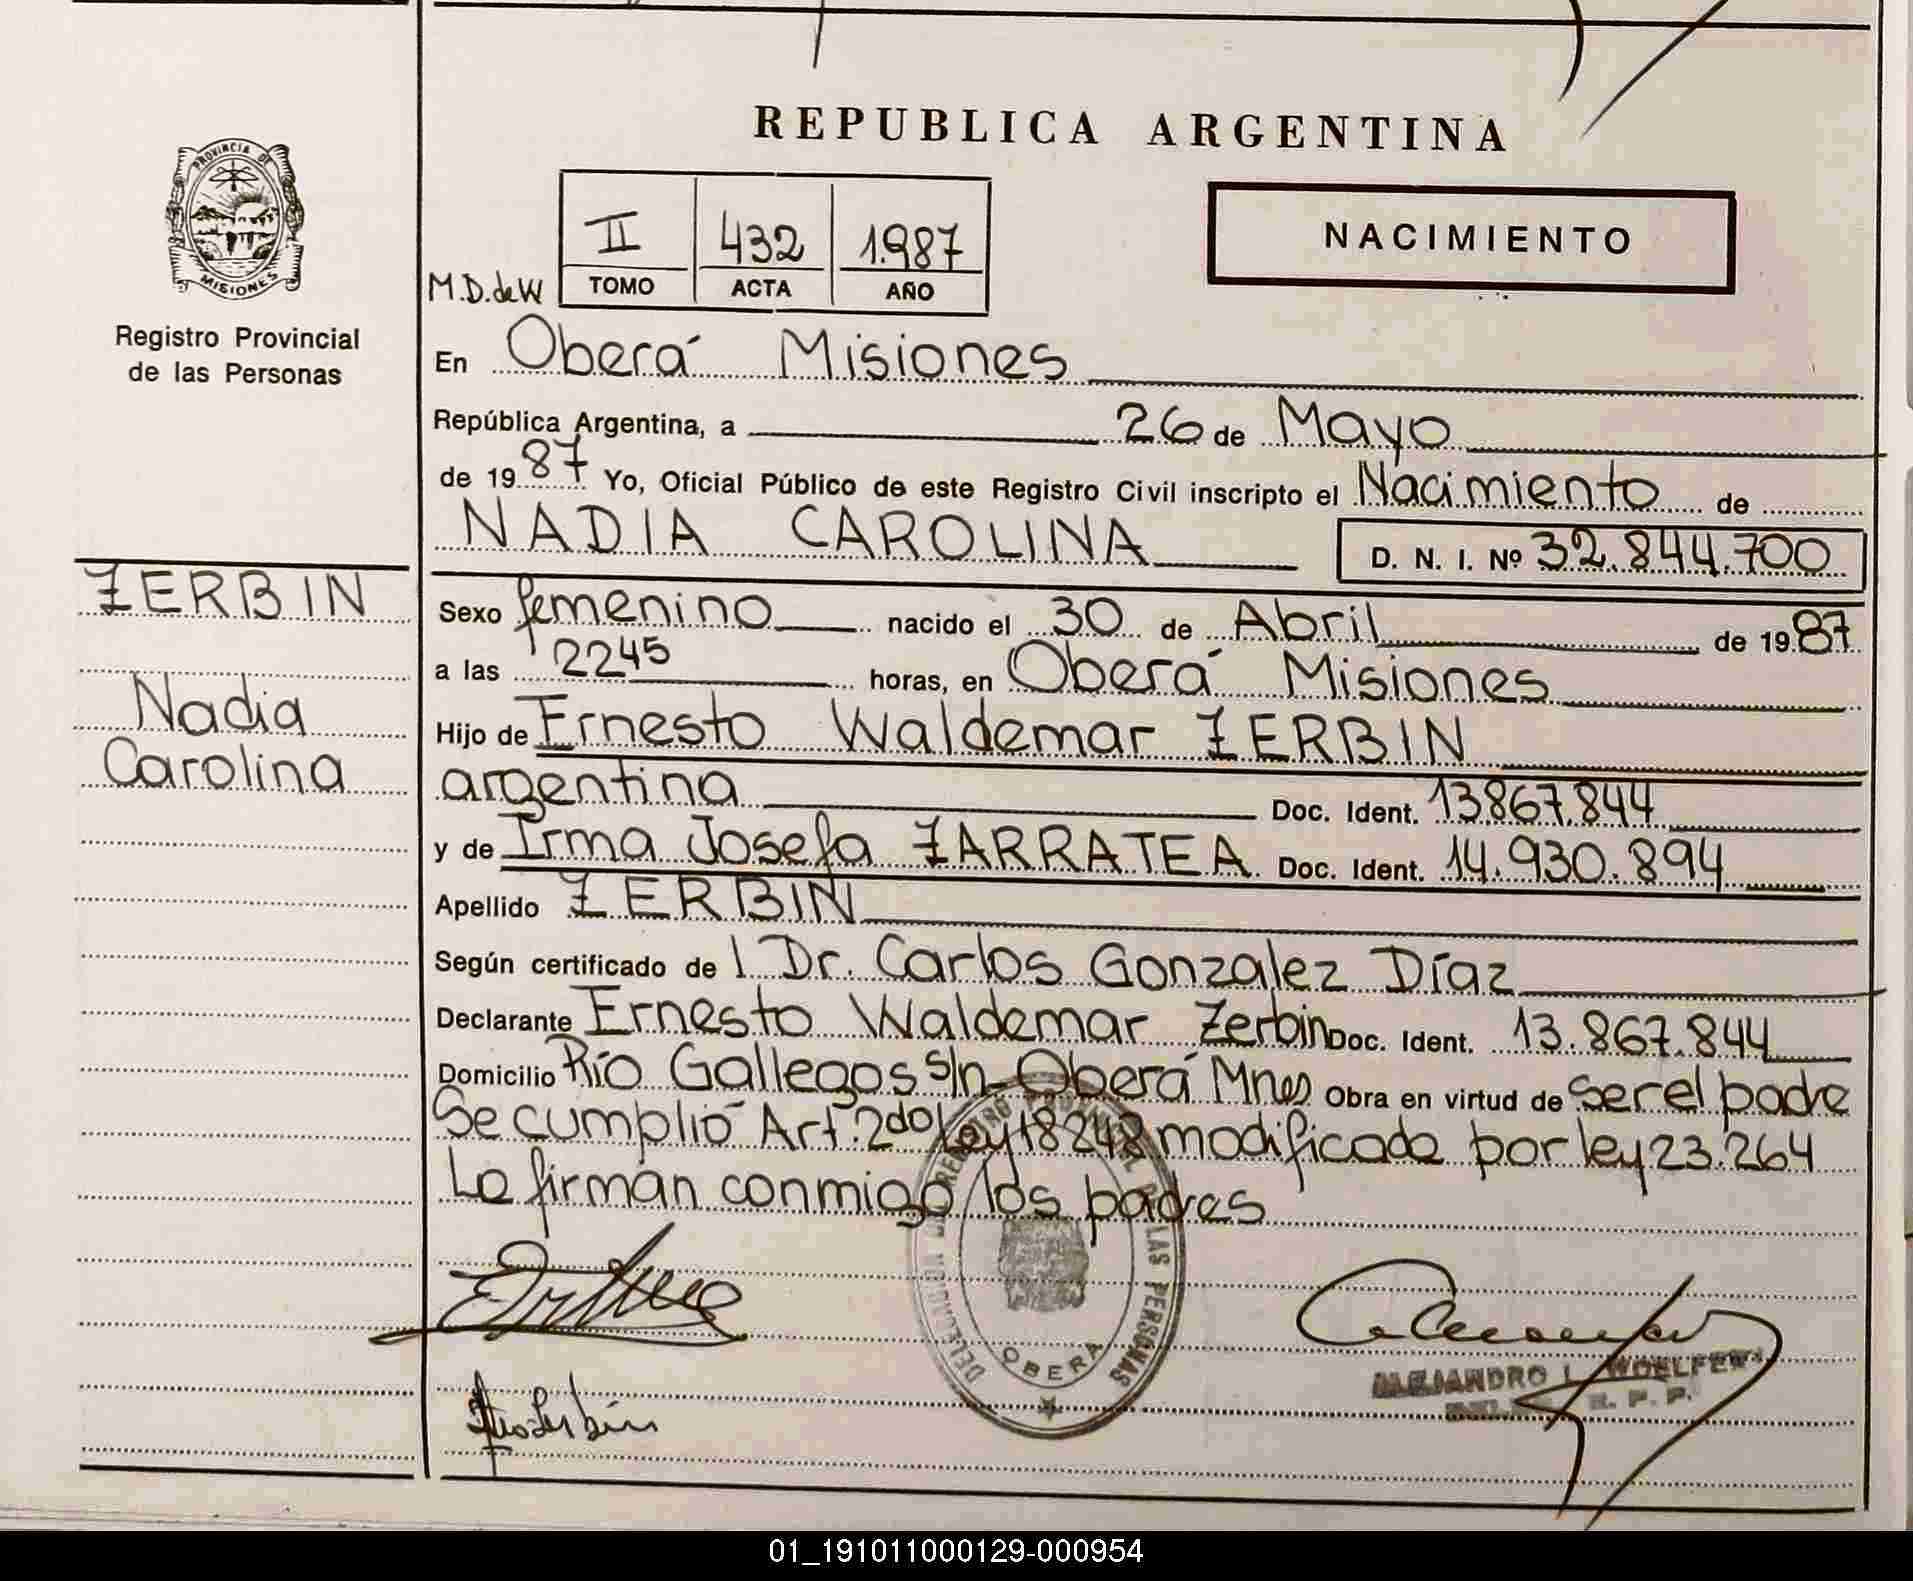 REPUBLICA ARGENTINA
PROVINCIA DE
MISIONES
Registro Provincial
de las Personas
II 432 1.987
TOMO ACTA AÑO
NACIMIENTO
M.D.de W
En Oberá Misiones
República Argentina, a 26 de Mayo
de 1987 Yo, Oficial Público de este Registro Civil inscripto el Nacimiento de
NADIA CAROLINA D. N. I. Nº 32.844.700
ZERBIN
Nadia
Carolina
Sexo femenino nacido el 30 de Abril de 1987
a las 2245 horas, en Oberá Misiones
Hijo de Ernesto Waldemar ZERBIN
argentina Doc. Ident. 13867.844
y de Irma Josefa ZARRATEA Doc. Ident. 14.930.894
Apellido ZERBIN
Según certificado de l Dr. Carlos Gonzalez Díaz
Declarante Ernesto Waldemar Zerbin Doc. Ident. 13.867.844
Domicilio Río Gallegos s/n_ Oberá Mnes Obra en virtud de ser el padre
Se cumplió Art. 2do Ley 18248 modificada por ley 23.264
Lo firman conmigo los padres
DELEGACION DEL REGISTRO PROVINCIAL DE LAS PERSONAS
OBERA
ALEJANDRO L. WOELFERT
R. P. P.
01_191011000129-000954